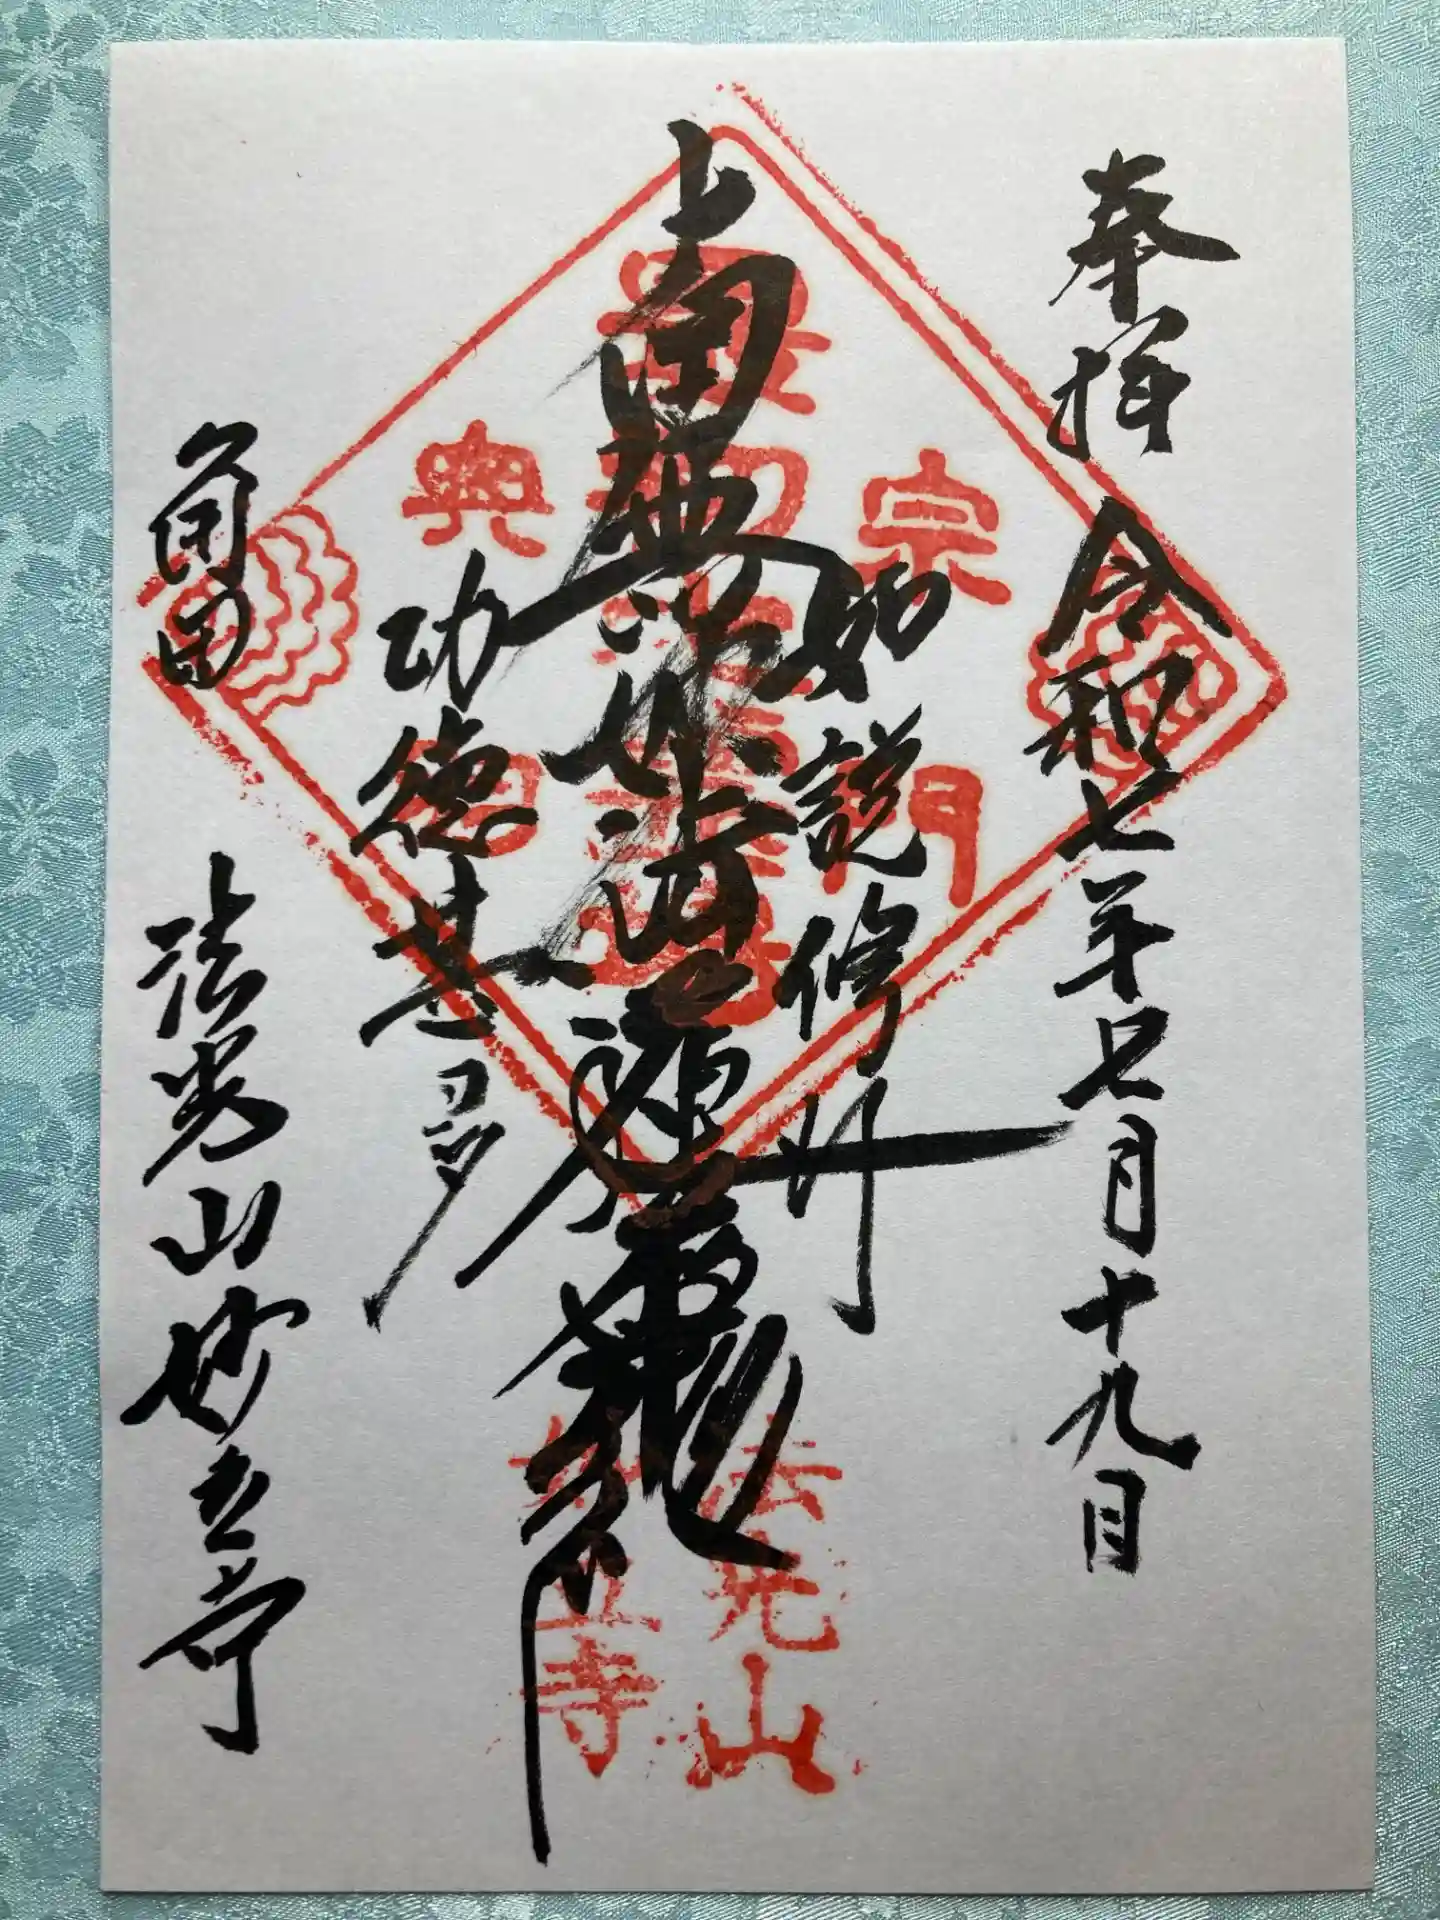 奉拝 令和七年七月十九日
如説修行
南無妙法蓮華経
功徳甚多
角田 法光山妙立寺
宗門
法光山
妙立寺